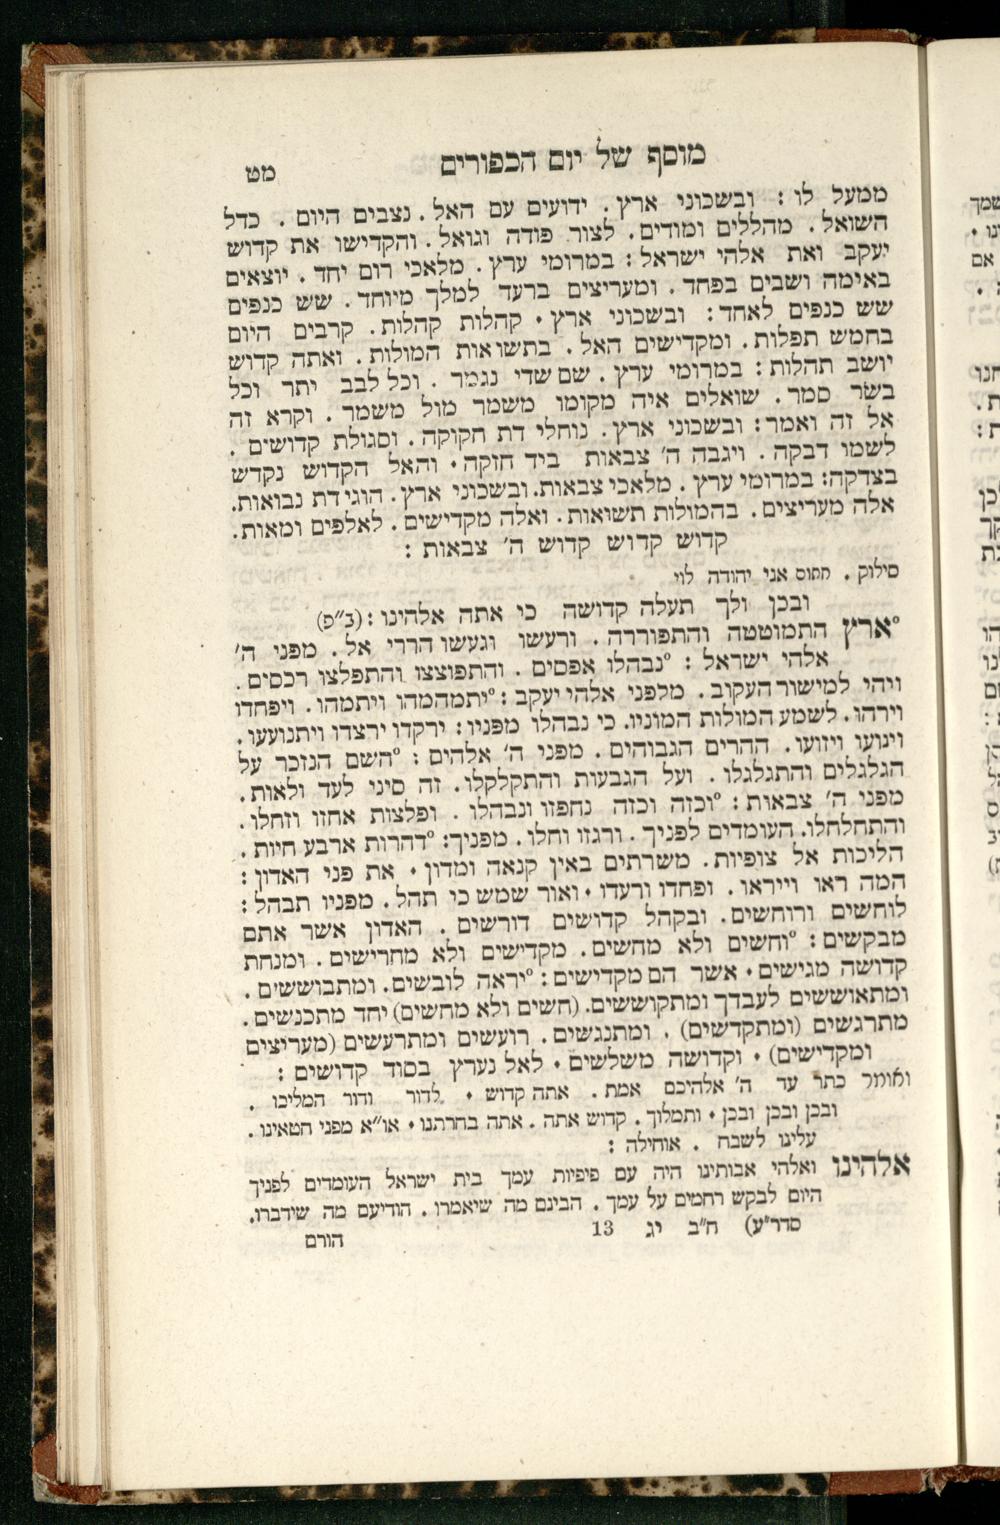 מוסף של יום הכפורים
מט
ממעל לו : ובשכוני ארץ . ידועים עם האל . נצבים היום . כדל
השואל . מהללים ומודים . לצור פודה וגואל . והקדישו את קדוש
יעקב ואת אלהי ישראל : במרומי ערץ . מלאכי רום יחד . יוצאים
באימה ושבים בפחד . ומעריצים ברעד למלך מיוחד . שש כנפים
שש כנפים לאחד : ובשכוני ארץ • קהלות קהלות . קרבים היום
בחמש תפלות . ומקדישים האל . בתשואות המולות . ואתה קדוש
יושב תהלות : במרומי ערץ . שם שדי נגמר . וכל לבב יתר וכל
בשר סמר . שואלים איה מקומו משמר מול משמר . וקרא זה
אל זה ואמר : ובשכוני ארץ . נוחלי דת חקוקה . וסגולת קדושים .
לשמו דבקה . ויגבה ה׳ צבאות ביד חזקה • והאל הקדוש נקדש
בצדקה: במרומי ערץ . מלאכי צבאות . ובשכוני ארץ . הוגי דת נבואות.
אלה מעריצים . בהמולות תשואות . ואלה מקדישים . לאלפים ומאות.
קדוש קדוש קדוש ה׳ צבאות :
סילוק . חתום אני יהודה לוי
ובכן ולך תעלה קדושה כי אתה אלהינו : (ב״פ)
°ארץ התמוטטה והתפוררה . ורעשו וגעשו הררי אל . מפני ה׳
אלהי ישראל : °נבהלו אפסים . והתפוצצו והתפלצו רכסים .
ויהי למישור העקוב . מלפני אלהי יעקב : °יתמהמהו ויתמהו . ויפחדו
וירהו . לשמע המולות המוניו . כי נבהלו מפניו : ירקדו ירצדו ויתנועעו .
וינועו ויזועו . ההרים הגבוהים . מפני ה׳ אלהים : °השם הנזכר על
הגלגלים והתגלגלו . ועל הגבעות והתקלקלו . זה סיני לעד ולאות .
מפני ה׳ צבאות : °וכזה וכזה נחפזו ונבהלו . ופלצות אחזו וזחלו .
והתחלחלו . העומדים לפניך . ורגזו וחלו . מפניך : °דהרות ארבע חיות .
הליכות אל צופיות . משרתים באין קנאה ומדון • את פני האדון :
המה ראו וייראו . ופחדו ורעדו • ואור שמש כי תהל . מפניו תבהל :
לוחשים ורוחשים . ובקהל קדושים דורשים . האדון אשר אתם
מבקשים : °וחשים ולא מחשים . מקדישים ולא מחרישים . ומנחת
קדושה מגישים • אשר הם מקדישים : °יראה לובשים . ומתבוששים .
ומתאוששים לעבדך ומתקוששים . (חשים ולא מחשים) יחד מתכנשים .
מתרגשים (ומתקדשים) . ומתנגשים . רועשים ומתרעשים (מעריצים
ומקדישים) • וקדושה משלשים • לאל נערץ בסוד קדושים :
ואומר כתר עד ה׳ אלהיכם אמת . אתה קדוש • לדור ודור המליכו .
ובכן ובכן ובכן • ותמלוך . קדוש אתה . אתה בחרתנו • או״א מפני חטאינו .
עלינו לשבח . אוחילה :
אלהינו ואלהי אבותינו היה עם פיפיות עמך בית ישראל העומדים לפניך
היום לבקש רחמים על עמך . הבינם מה שיאמרו . הודיעם מה שידברו.
סדר״ע) ח״ב יג 13
הורם